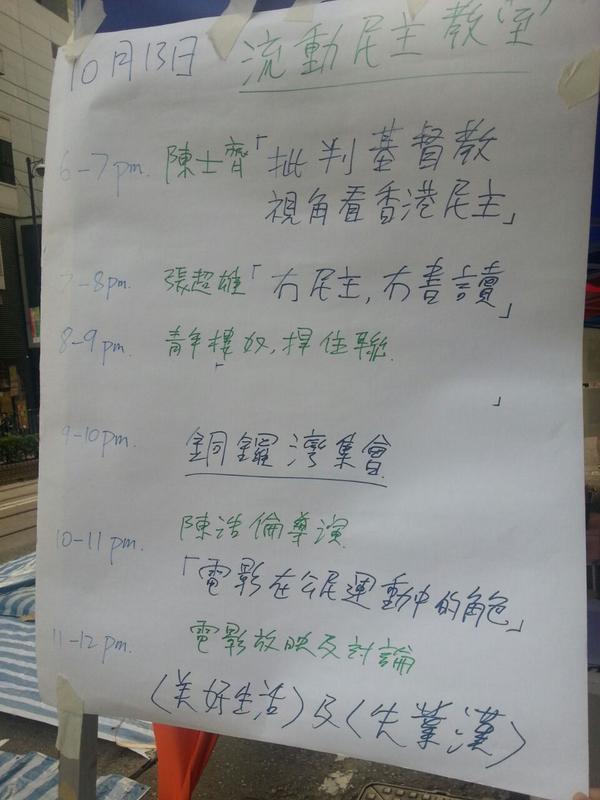 10月13日 流動民主教室
6-7pm. 陳士齊「批判基督教
視角看香港民主」
7-8pm. 張超雄「冇民主,冇書讀」
8-9pm. 青年樓奴,捍住聯
「 」
9-10pm. 銅鑼灣集會
10-11pm. 陳浩倫導演
「電影在公民運動中的角色」
11-12pm. 電影放映及討論
(美好生活)及(失業漢)